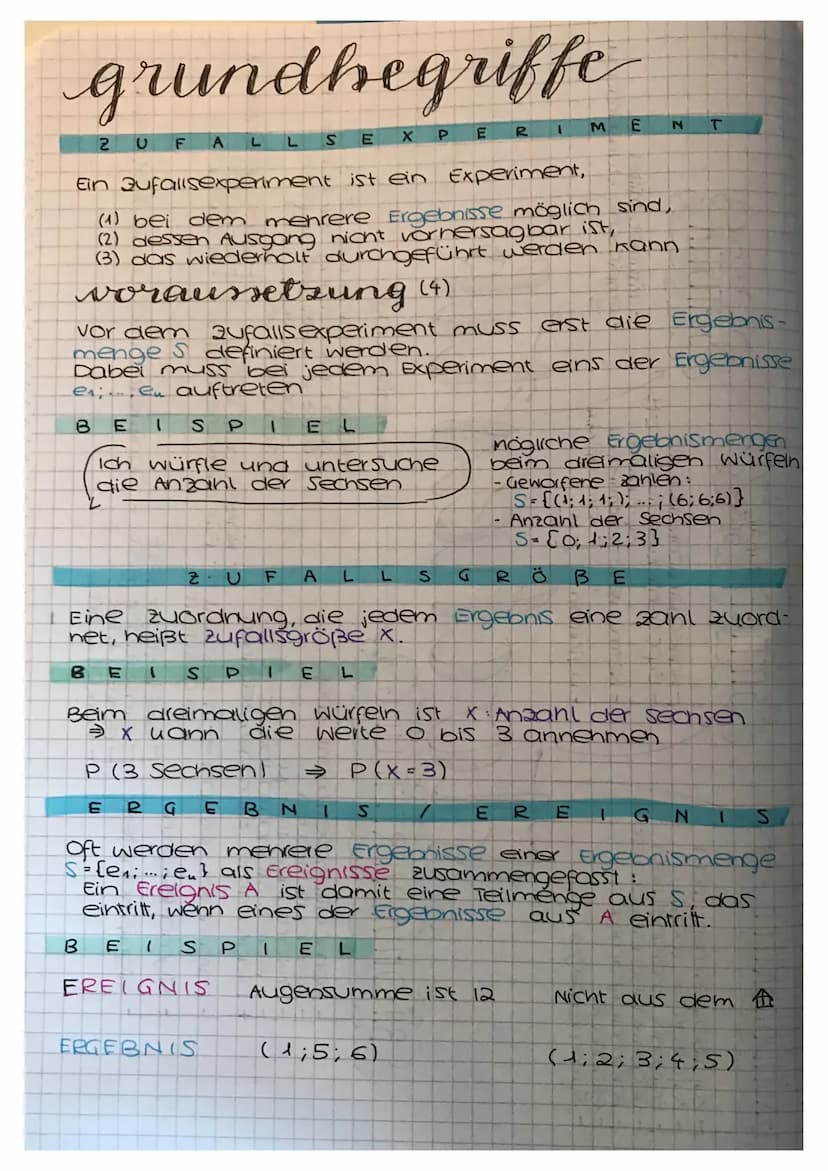 grundbegriffe
ZUFALLSEXPERIMENT
Ein Zufallsexperiment ist ein Experiment,
(1) bei dem mehrere Ergebnisse möglich sind,
(2) dessen Ausgang nicht vorhersagbar ist,
(3) das wiederholt durchgeführt werden kann
voraussetzung (4)
Vor dem Zufallsexperiment muss erst die Ergebnis-
menge S definiert werden.
Dabei muss bei jedem Experiment eins der Ergebnisse
e₁; ...; eₙ auftreten
BEISPIEL
Ich würfle und untersuche
die Anzahl der Sechsen
mögliche Ergebnismengen
beim dreimaligen Würfeln
- Geworfene Zahlen:
S={(1;1;1;); ...; (6;6;6)}
- Anzahl der Sechsen
S={0;1;2;3}
ZUFALLSGRÖßE
Eine Zuordnung, die jedem Ergebnis eine Zahl zuord-
net, heißt Zufallsgröße X.
BEISPIEL
Beim dreimaligen Würfeln ist X: Anzahl der Sechsen
⇒ X kann die Werte 0 bis 3 annehmen
P (3 Sechsen) ⇒ P(X=3)
ERGEBNIS / EREIGNIS
Oft werden mehrere Ergebnisse einer Ergebnismenge
S={e₁; ...; eₙ} als Ereignisse zusammengefasst:
Ein Ereignis A ist damit eine Teilmenge aus S, das
eintritt, wenn eines der Ergebnisse aus A eintritt.
BEISPIEL
EREIGNIS Augensumme ist 12 Nicht aus dem
ERGEBNIS (1;5;6) (1;2;3;4;5)